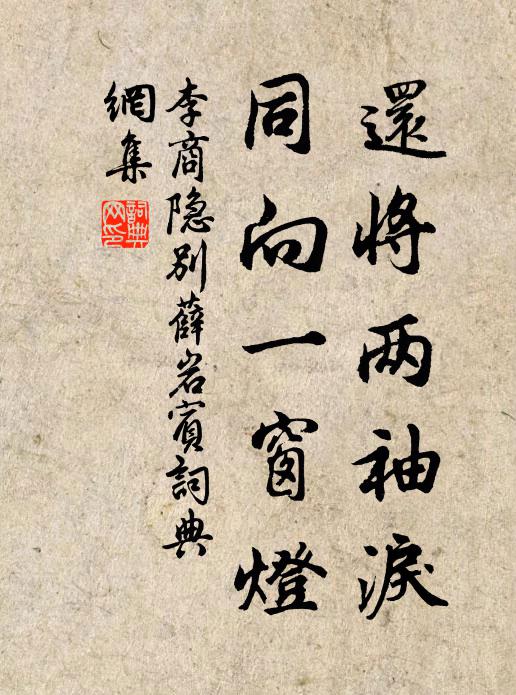 還將两袖淚
同向一窗燈
李商隐别薛岩賓詞典
網集
詞典
网印